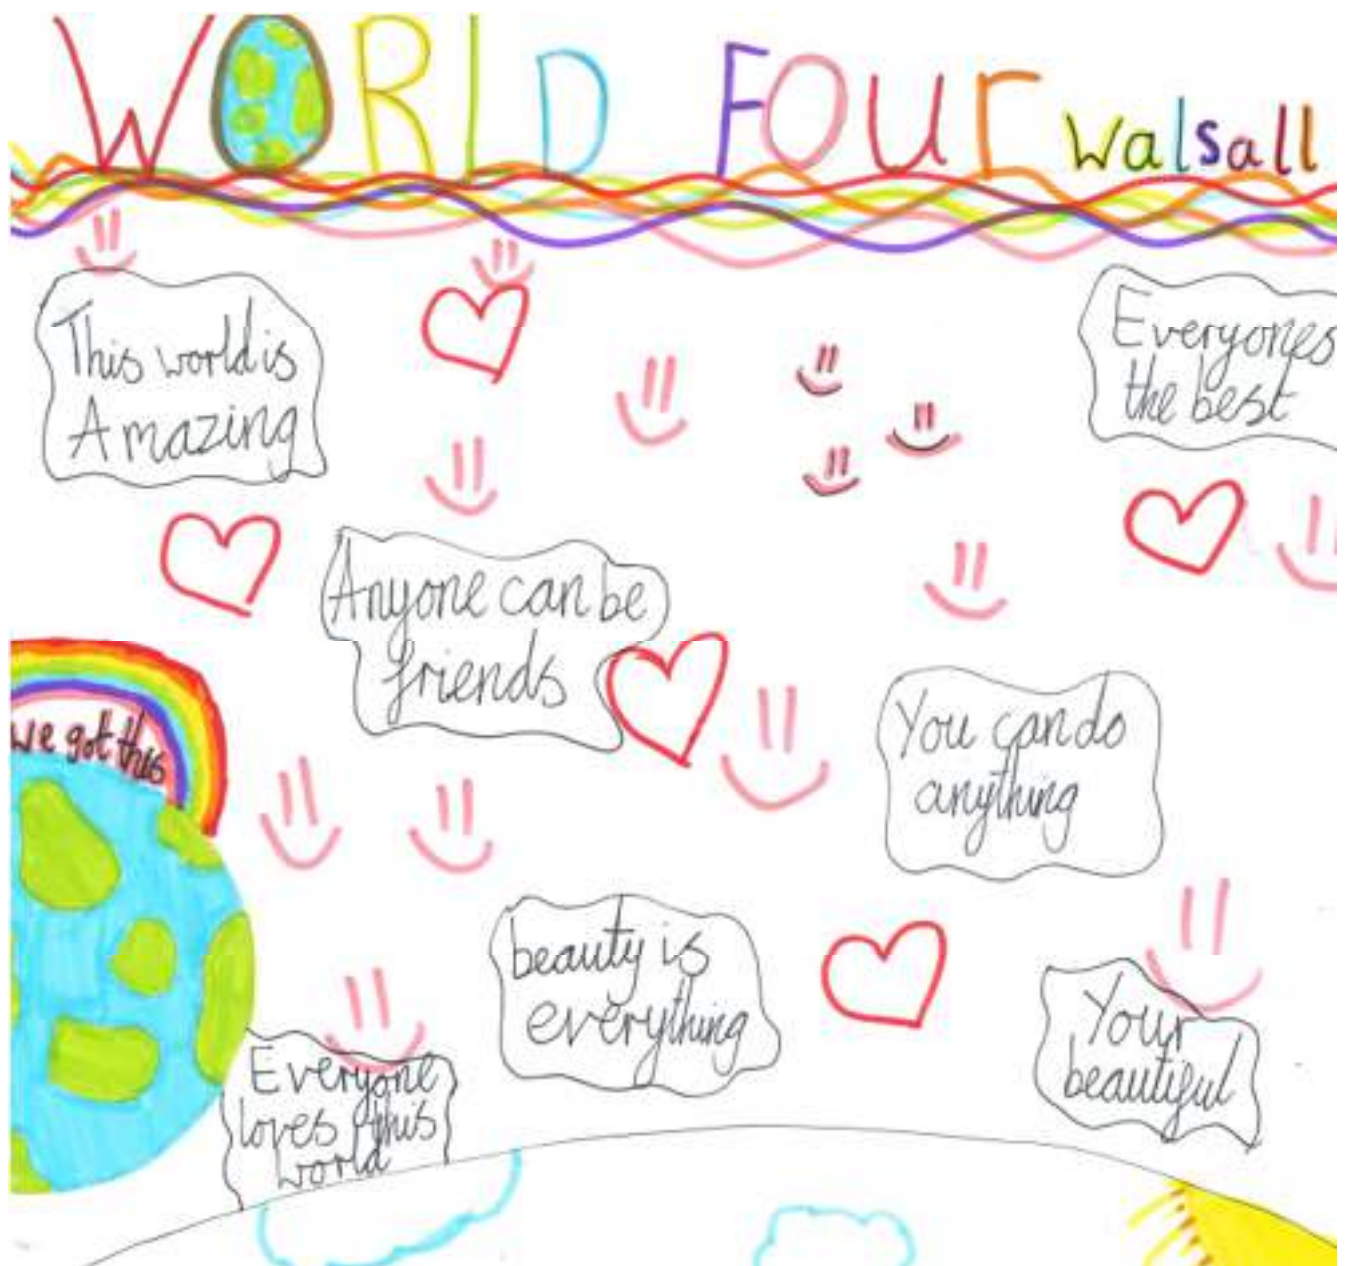 WORLD FOUr walsall
This world is
Amazing
Everyones
the best
Anyone can be
friends
we got this
You can do
anything
beauty is
everything
Your
beautiful
Everyone
loves this
world